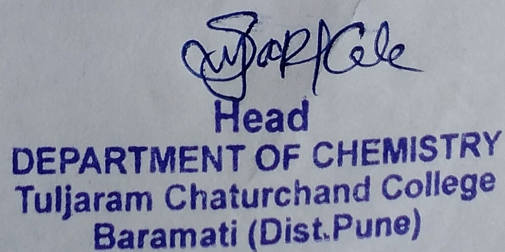 Head
DEPARTMENT OF CHEMISTRY
Tuljaram Chaturchand College
Baramati (Dist.Pune)